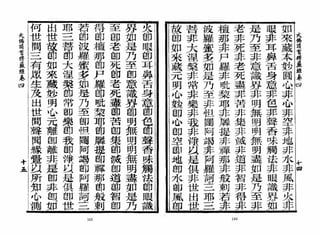 如來藏本妙圓心非心非空非地非水非風非火非
眼非耳鼻舌身意非色非聲香味觸法非眼識界如
是乃至非意識界非明無明明無明盡如是乃至非
老非死非老死盡非苦非集非滅非道非智非得非
檀那非尸羅非毗梨耶非羼提非禪那非般剌若非
波羅蜜多如是乃至非怛闥阿竭非阿羅訶三耶三
菩非大涅槃非常非樂非我非淨以是俱非世出世
故即如來藏元明心妙即心即空即地即水即風即
火即眼即耳鼻舌身意即色即聲香味觸法即眼識
界如是乃至即意識界即明無明明無明盡如是乃
至即老即死即老死盡即苦即集即滅即道即智即
得即檀那即尸羅即毗梨耶即羼提即禪那即般剌
若即波羅蜜多如是乃至即怛闥阿竭即阿羅訶三
耶三菩即大涅槃即常即樂即我即淨以是俱即世
出世故即如來藏妙明心元離即離非是即非即如
何世間三有眾生及出世間聲聞緣覺以所知心測
十四
十五